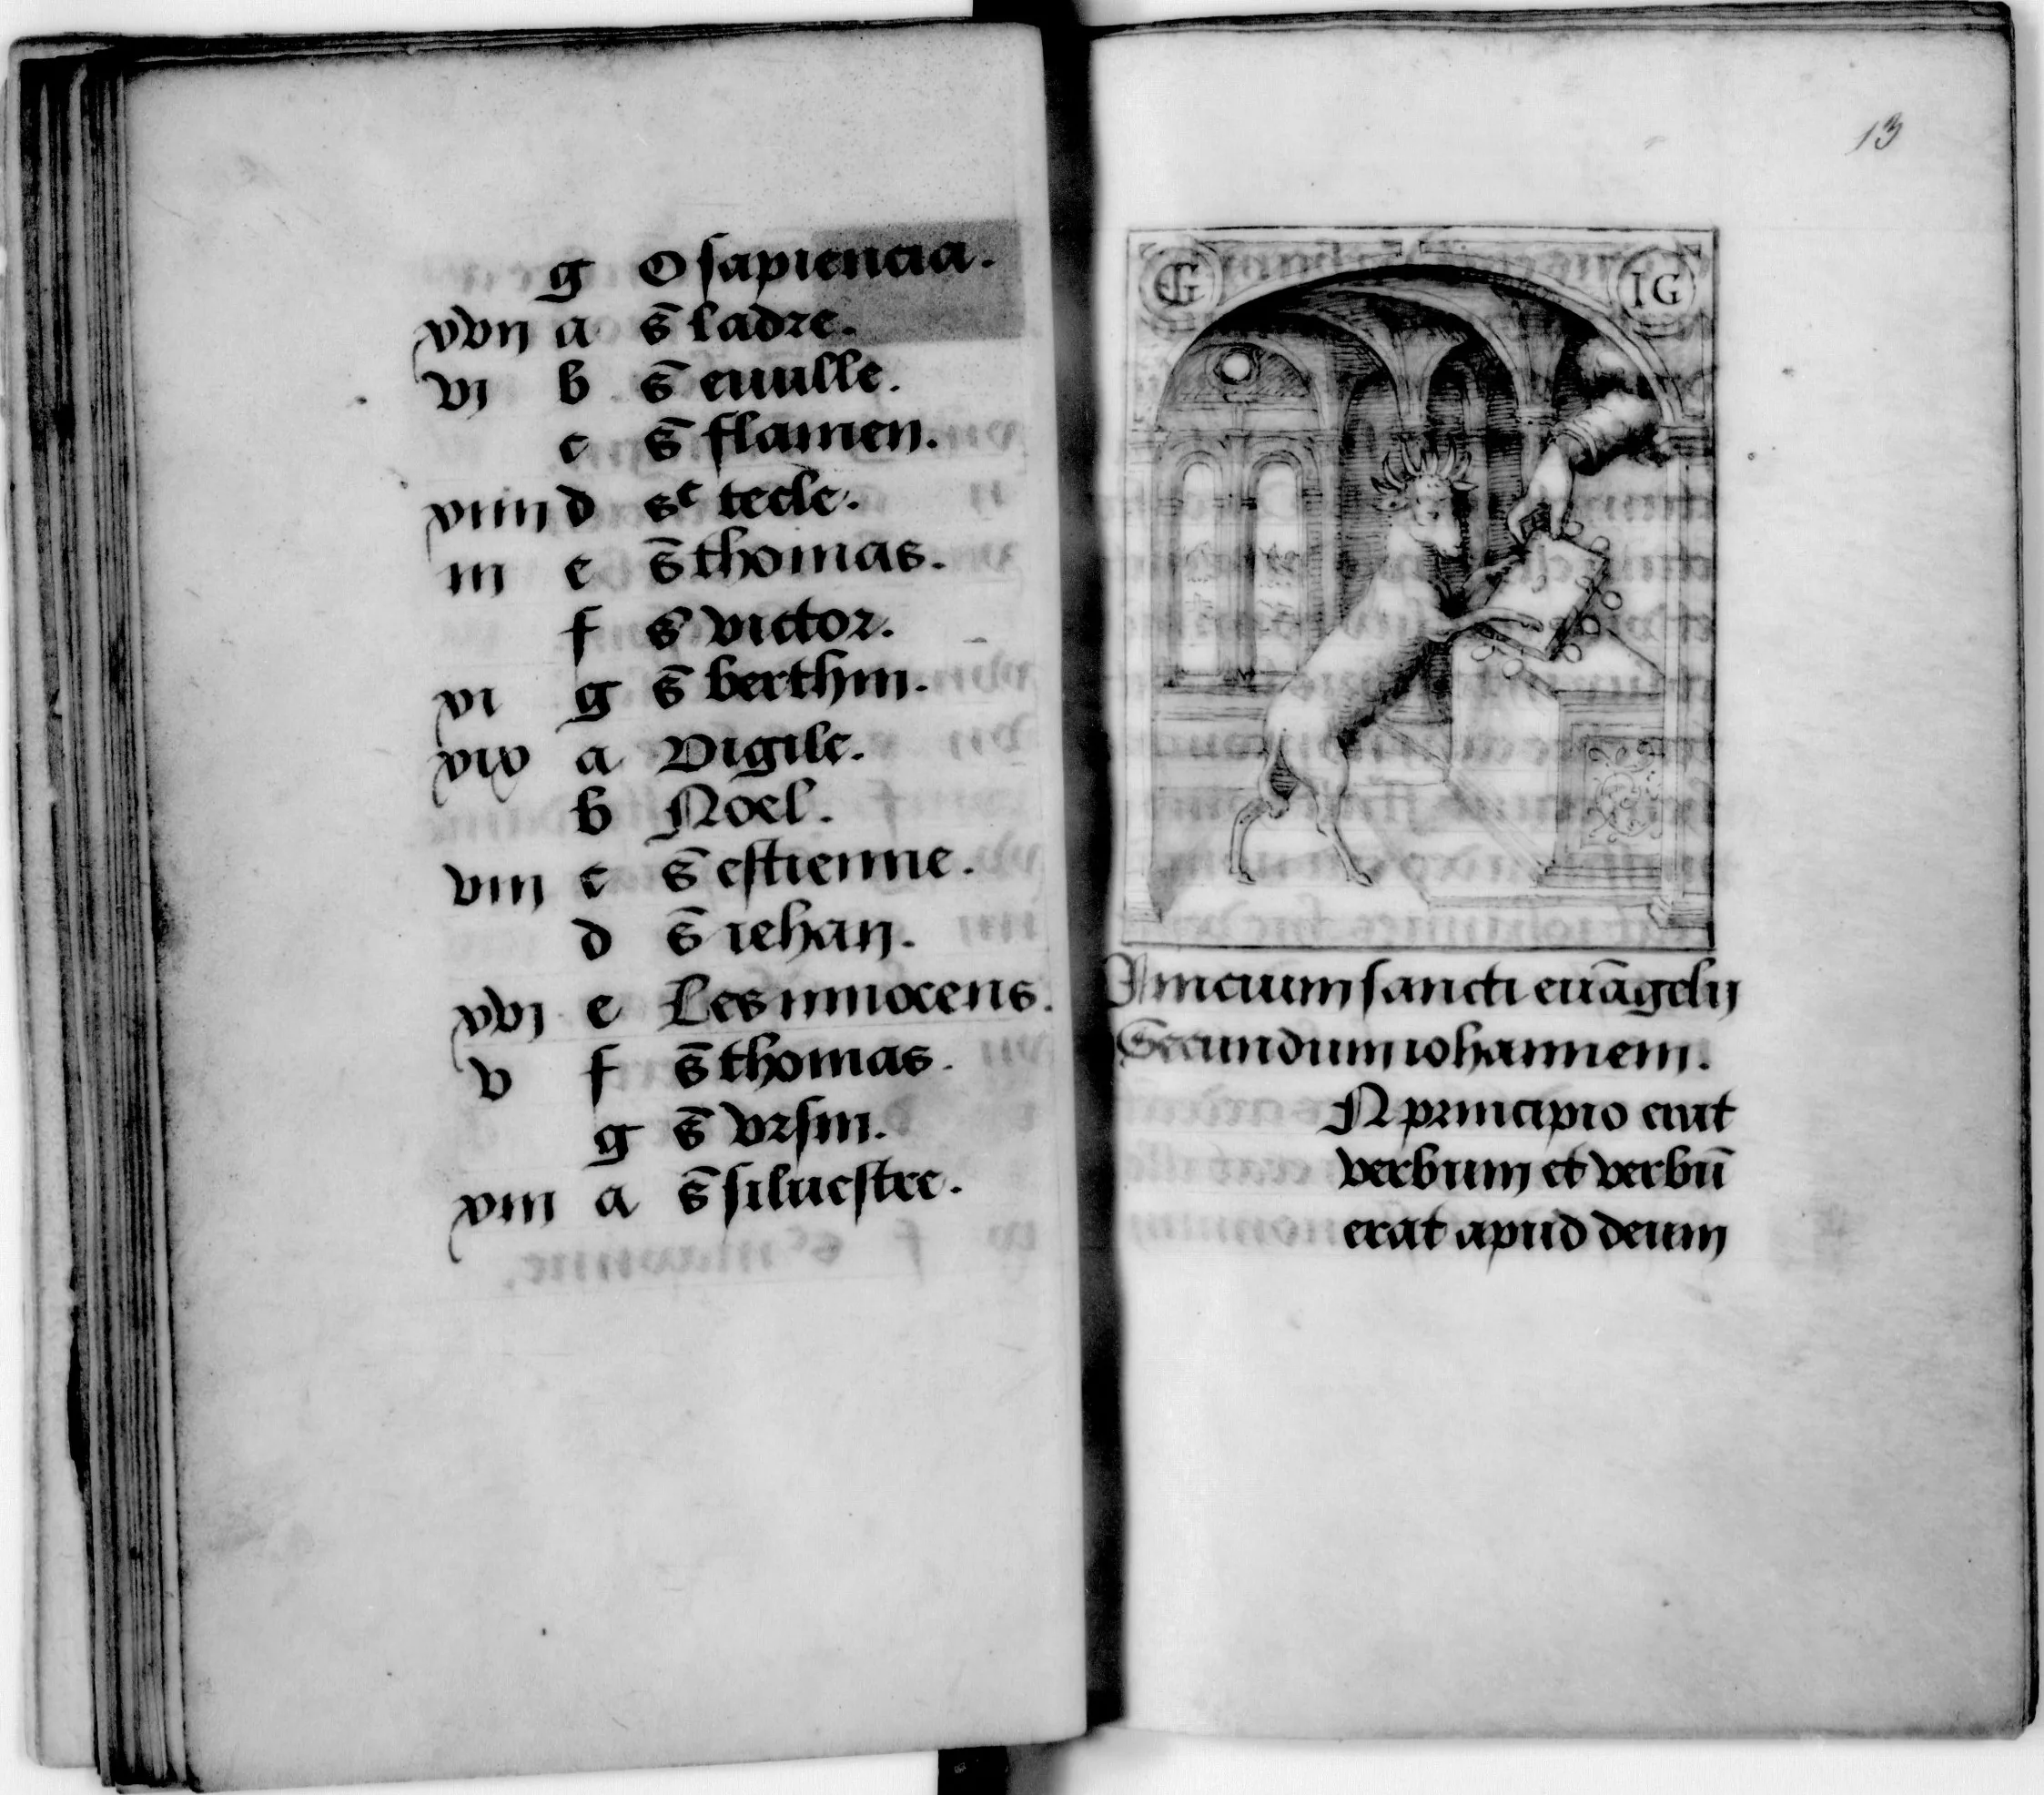 g O sapiencia.
xvij a s̄ ladre.
vj b s̄
c s̄ flamen.
xiiij d sᵉ tecle.
iij e s̄ thomas.
f s̄ victor.
xi g s̄ berthin.
xix a Vigile.
b Noel.
viij c s̄ estienne.
d s̄ iehan.
xvj e Les innocens.
v f s̄ thomas.
g s̄ vrsin.
xiij a s̄ siluestre.
13
G IG
Inicium sancti euāgelij
Secundum iohannem.
N principio erat
verbum et verbū
erat apud deum